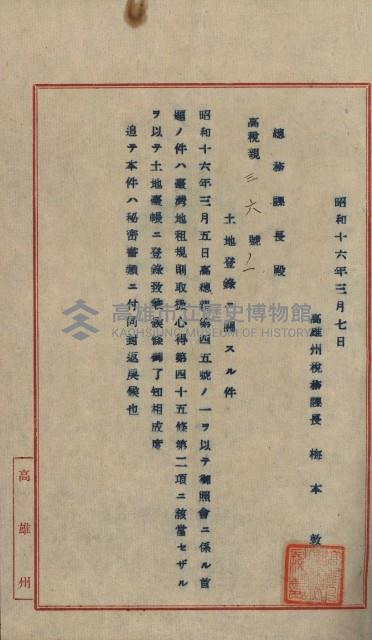 昭和十六年三月七日
高雄州稅務課長 梅本敦
總務課長殿
高稅親三六號ノ一
土地登錄ニ關スル件
昭和十六年三月五日高總親第四五號ノ一ヲ以テ御照會ニ係ル首
題ノ件ハ臺灣地租規則取扱心得第四十五條第二項ニ該當セザル
ヲ以テ土地臺帳ニ登錄致候條御了知相成度
追テ本件ハ秘密書類ニ付同封返戾候也
高雄州
高雄市立歷史博物館
KAOHSIUNG MUSEUM OF HISTORY